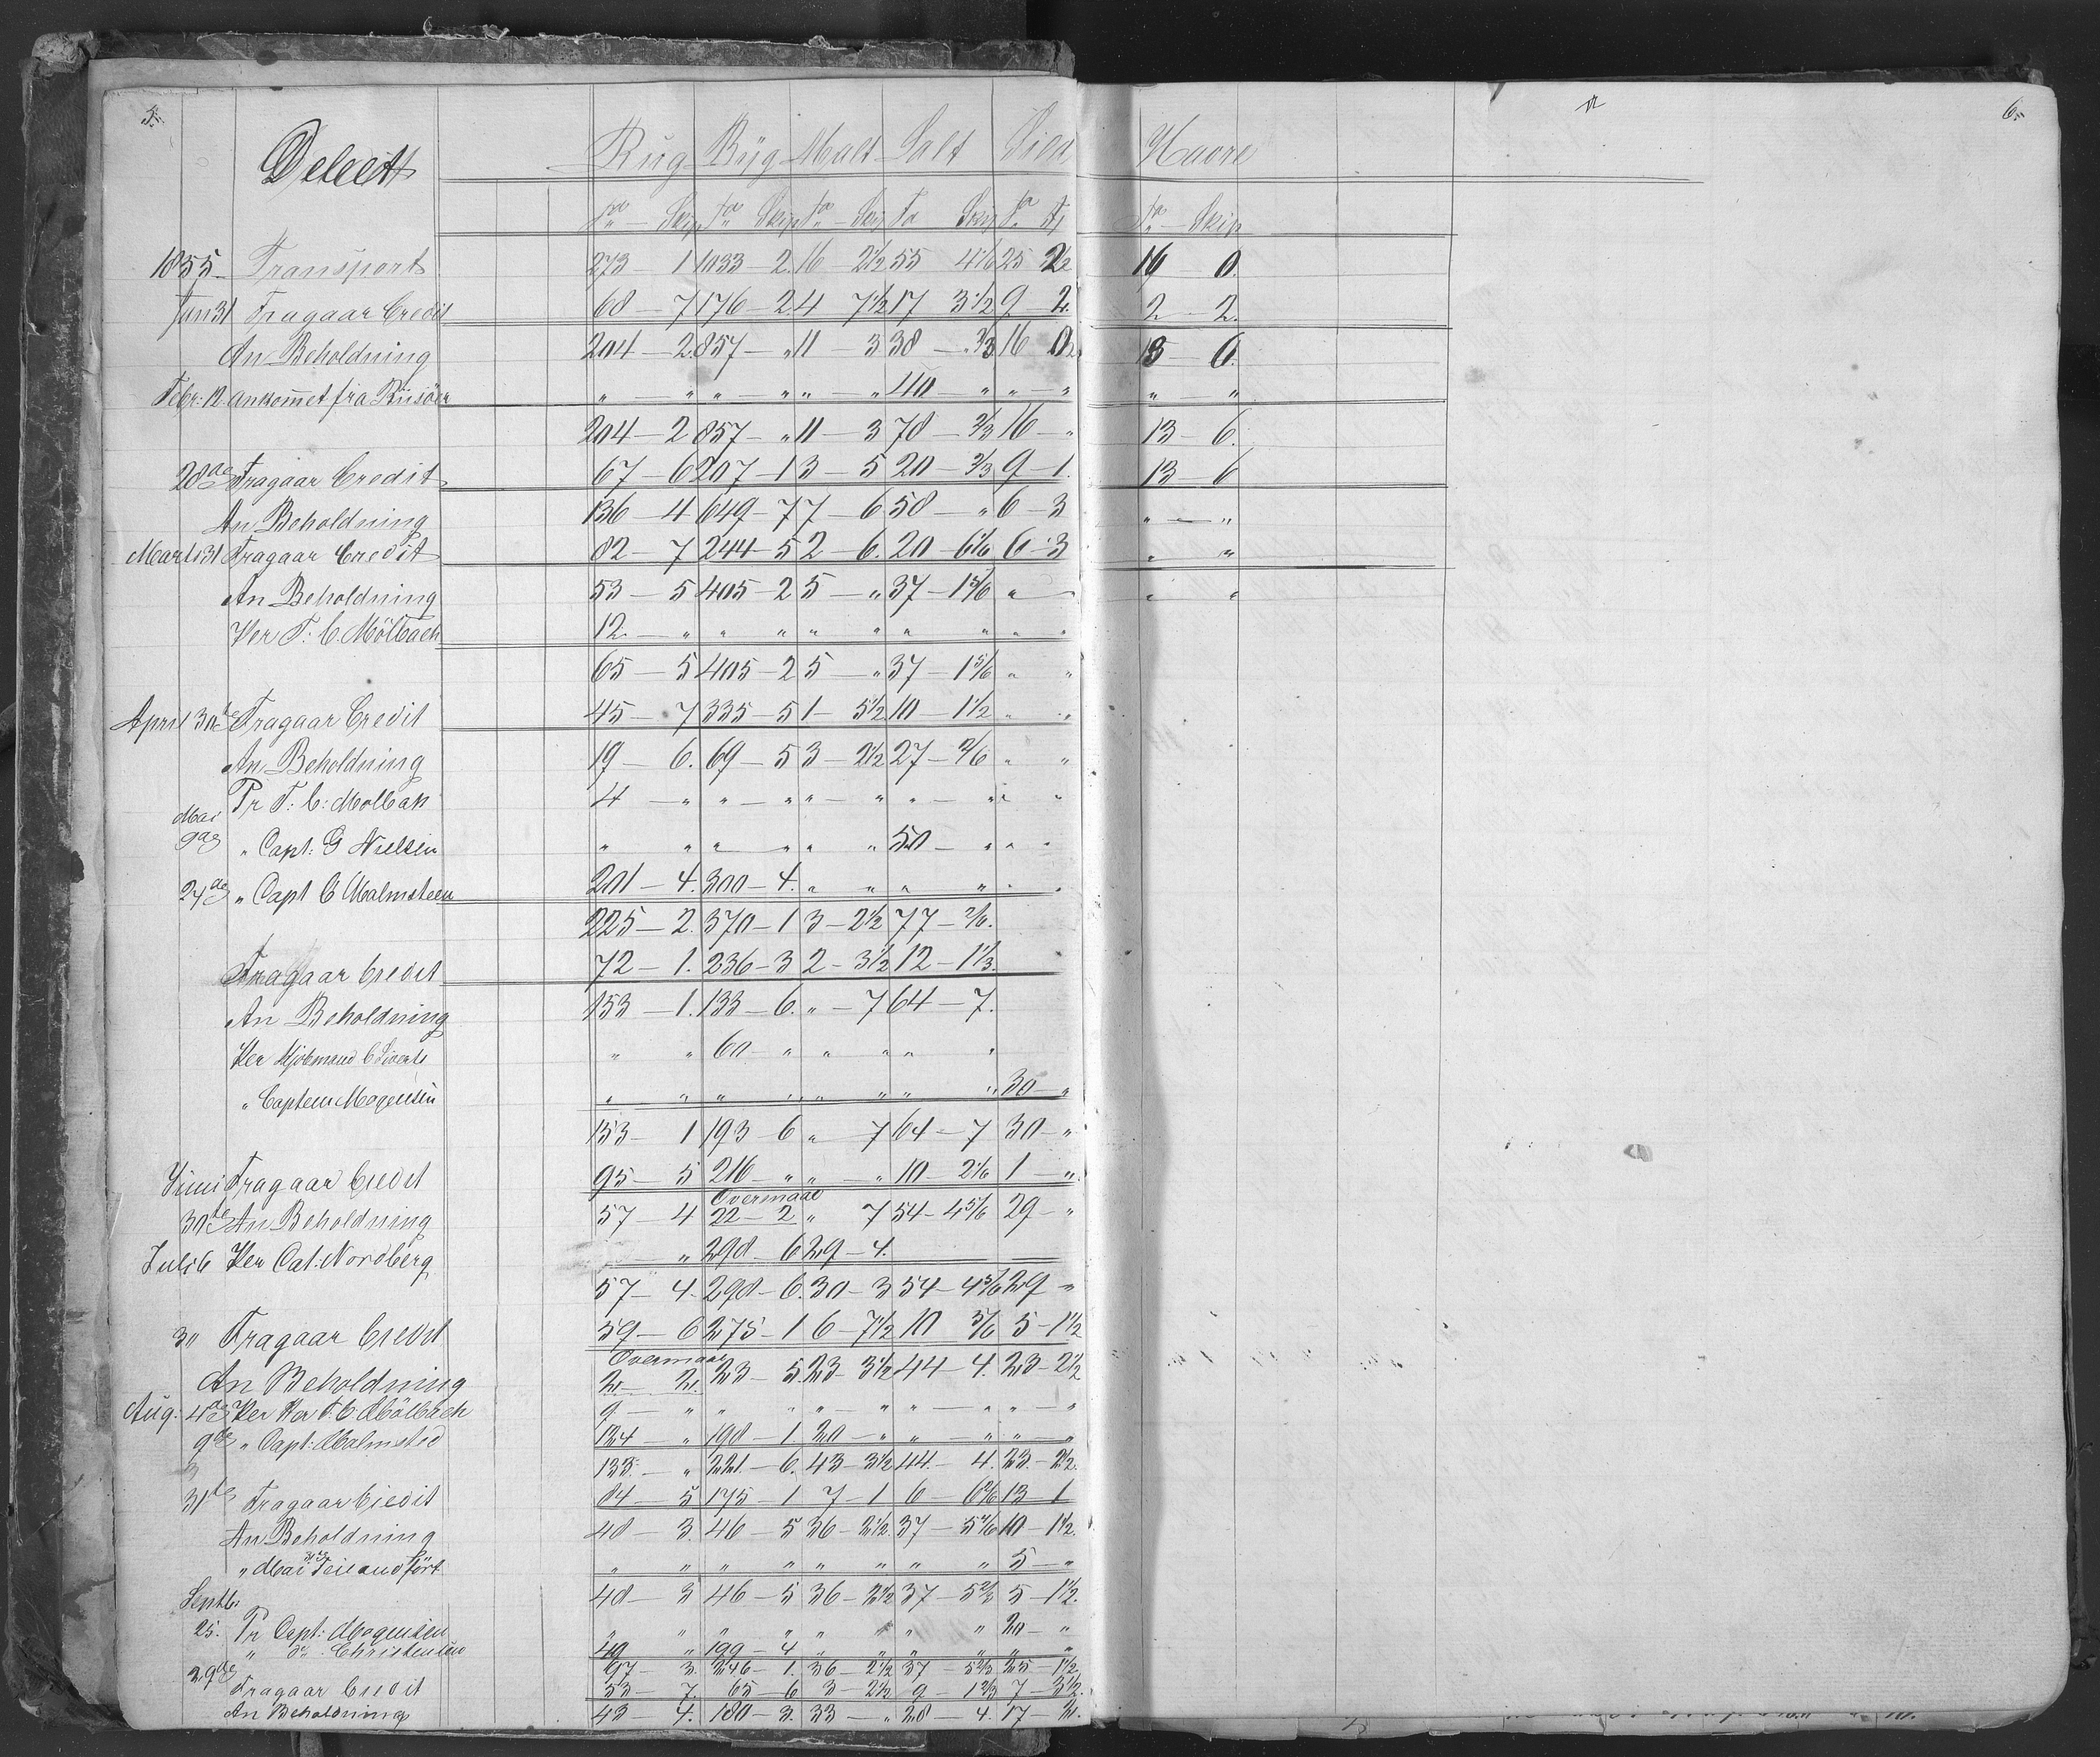 5. 6.
Debet Rug Byg Malt Salt Sild Havre
Ta Skip Ta Skip Ta Skip Ta Skip Ta Fj Ta Skip
1855 Transport 273 — 1 1033 — 2 16 — 2 1/2 55 4 1/6 25 2 1/2 16 — 0
Jan 31 Fragaar Credit 68 — 7 176 — 2 4 7 1/2 17 3 1/2 9 — 2 2 — 2
An Beholdning 204 — 2 857 — „ 11 — 3 38 — 2/3 16 0 1/2 13 — 6
Febr: 12 ankomet fra Riisöer „ — „ „ — „ „ — „ 40 „ „ — „ „ — „
204 — 2 857 — „ 11 — 3 78 — 2/3 16 — „ 13 — 6
28de Fragaar Credit 67 — 6 207 — 1 3 — 5 20 — 2/3 9 — 1 13 — 6
An Beholdning 136 — 4 649 — 7 7 — 6 58 — „ 6 — 3 „ — „
Marts 31 Fragaar Credit 82 — 7 244 — 5 2 — 6 20 — 6 1/6 6 — 3 „ „
An Beholdning 53 — 5 405 — 2 5 — „ 37 — 1 5/6 „ — „ „
Per T: C. Mölbach 12 — „ „ „ „ „ „ „ „ „
65 — 5 405 — 2 5 — „ 37 — 1 5/6 „ „
April 30te Fragaar Credit 45 — 7 335 — 5 1 — 5 1/2 10 — 1 1/2 „ „
An Beholdning 19 — 6 69 — 5 3 — 2 1/2 27 — 2/6 „ „
Pr T: C: Mölbak 4 — „ „ — „ „ — „ „ — „ „ „
Mai
9de „ Capt: G Nielsen „ „ „ — „ „ „ 50 — „ „ „
24de „ Capt C Malmsteen 201 — 4 300 — 4 „ „ „ „ „ „
225 — 2 370 — 1 3 — 2 1/2 77 — 2/6
Fragaar Credit 72 — 1 236 — 3 2 — 3 1/2 12 — 1 1/3
An Beholdning 153 — 1 133 — 6 „ — 7 64 — 7
Per Kjöbmand C Siverts „ „ 60 „ „ „ „ „
„ Captein Mogensen „ „ „ „ „ „ „ „ 30 — „
153 — 1 193 — 6 „ — 7 64 — 7 30 — „
Juni Fragaar Credit 95 — 5 216 — „ „ — „ 10 — 2 1/6 1 — „
Overmaal
30te An Beholdning 57 — 4 22 — 2 „ 7 54 — 4 5/6 29 — „
Juli 6 Per Cat: Nordberg — „ 298 — 6 29 — 4
57 — 4 298 — 6 30 — 3 54 — 4 5/6 29 — „
31 Fragaar Credit 59 — 6 275 — 1 6 — 7 1/2 10 5/6 5 — 1 1/2
Overmaal
An Beholdning 2 — 2 23 — 5 23 3 1/2 44 — 4 23 — 2 1/2
Aug: 4de Per Her T. C. Mölbach 9 — „ „ „ „ — „ „ — „ „ — „
9de „ Capt: Malmsted 124 „ 198 — 1 20 — „ „ — „ „ — „
133 — „ 221 — 6 43 — 3 1/2 44 — 4 23 — 2 1/2
31te Fragaar Credit 84 — 5 175 — 1 7 — 1 6 — 6 2/6 13 1
An Beholdning 48 — 3 46 — 5 36 — 2 1/2 37 — 5 4/6 10 — 1 1/2
„ Mai Feil andfört „ „ „ „ „ „ „ „ 5 — „
48 — 3 46 — 5 36 — 2 1/2 37 5 2/3 5 — 1 1/2
Septb:
25. Pr Capt: Mogensen „ „ „ „ „ „ „ „ 20 — „
„ do Christensen 49 „ 199 — 4 „ „ „ „ „ „
97 — 3 246 — 1 36 — 2 1/2 37 — 5 2/3 25 — 1 1/2
29de Fragaar Credit 53 — 7 65 — 6 3 — 2 1/2 9 — 1 2/3 7 — 3 1/2
An Beholdning 43 — 4 180 — 3 33 — „ 28 — 4 17 — 2